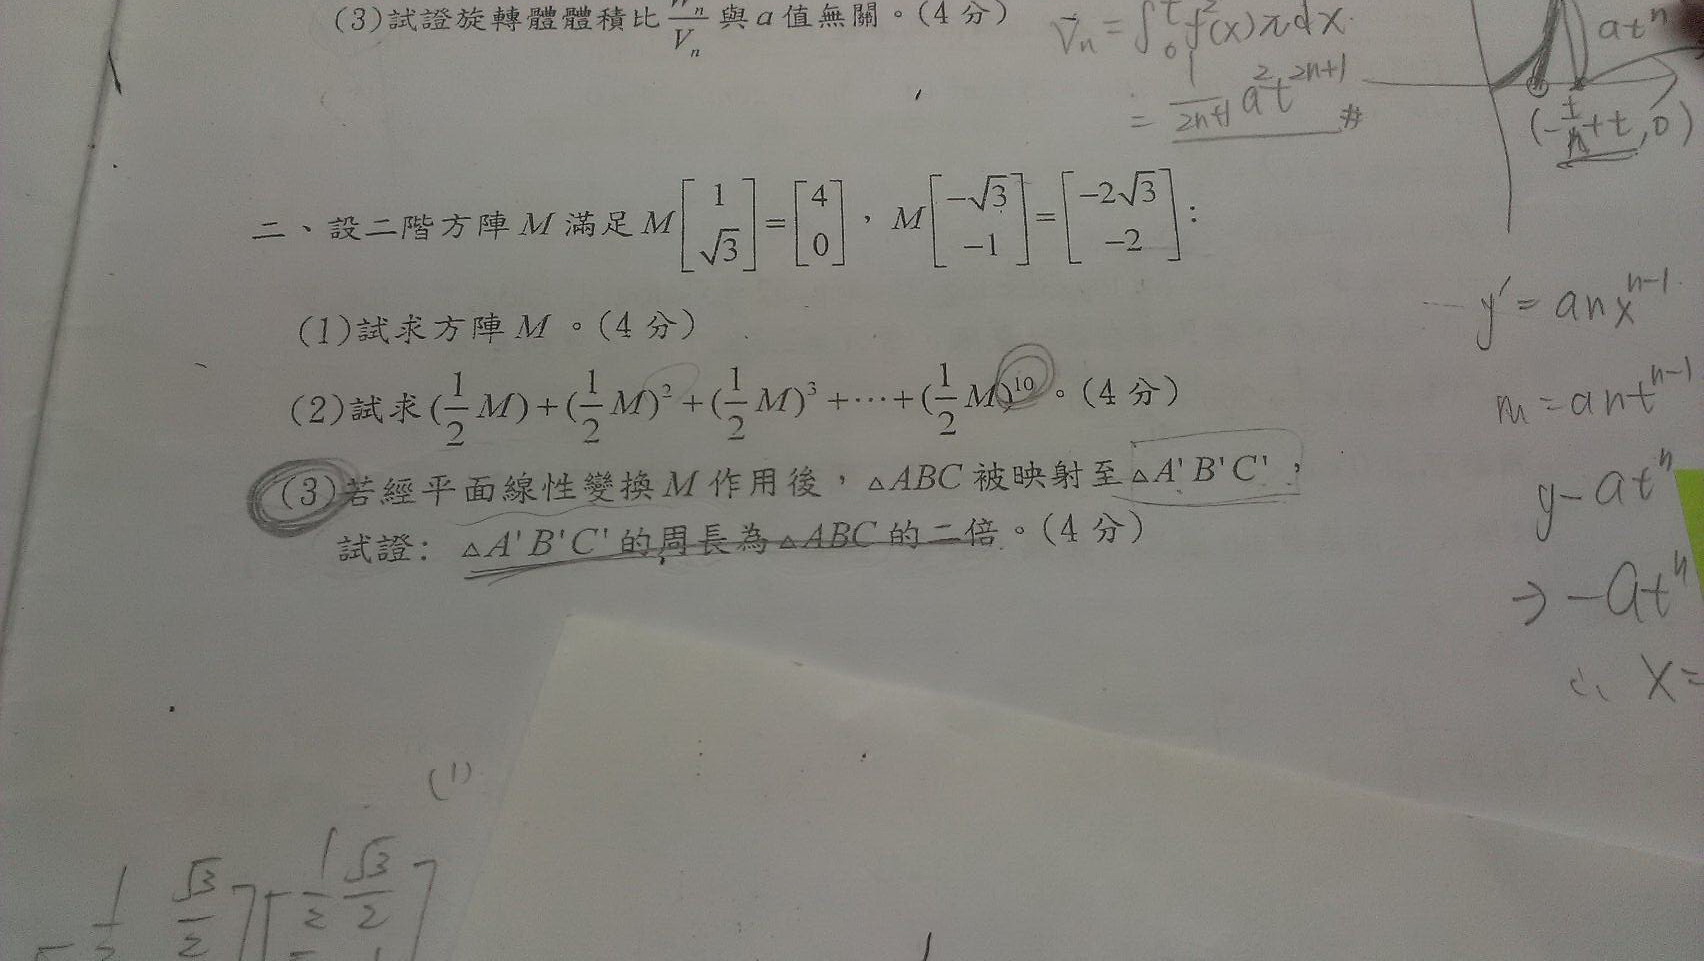 (3)試證旋轉體體積比 W_n/V_n 與a值無關。(4分)
V_n = ∫_0^t f²(x)πdx
= 1/(2n+1) a²t^(2n+1) #
at^n
(-t/n+t,0)
二、設二階方陣M滿足M[1 √3]=[4 0],M[-√3 -1]=[-2√3 -2]:
y' = anx^(n-1)
(1)試求方陣M。(4分)
(2)試求(1/2 M)+(1/2 M)²+(1/2 M)³+⋯+(1/2 M)^10。(4分)
m = ant^(n-1)
(3)若經平面線性變換M作用後,△ABC被映射至△A'B'C',
y-at^n
試證:△A'B'C'的周長為△ABC的二倍。(4分)
⇒ -at^n
∴ x=
(1)
1/2 √3/2][1/2 √3/2]